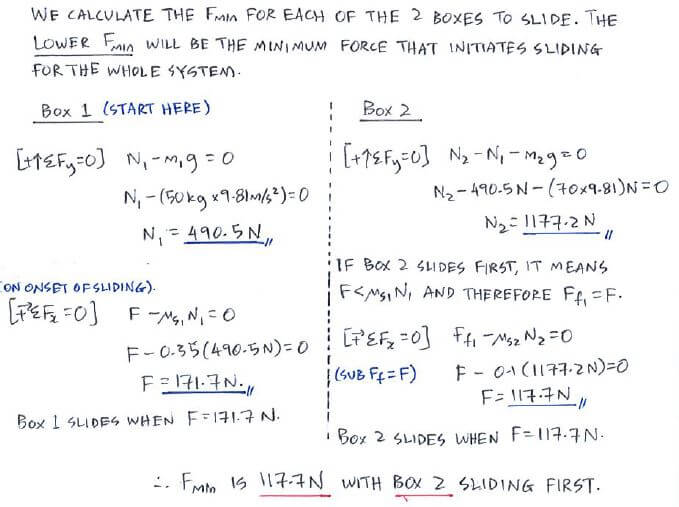 WE CALCULATE THE Fmin FOR EACH OF THE 2 BOXES TO SLIDE. THE
LOWER Fmin WILL BE THE MINIMUM FORCE THAT INITIATES SLIDING
FOR THE WHOLE SYSTEM.
Box 1 (START HERE)
[+↑ΣFy=0] N₁-m₁g=0
N₁-(50kg×9.81m/s²)=0
N₁=490.5N
(ON ONSET OF SLIDING).
[→+ΣFx=0] F-Ms₁N₁=0
F-0.35(490.5N)=0
F=171.7N.
Box 1 SLIDES WHEN F=171.7N.
Box 2
[+↑ΣFy=0] N₂-N₁-m₂g=0
N₂-490.5N-(70×9.81)N=0
N₂=1177.2N
IF BOX 2 SLIDES FIRST, IT MEANS
F<Ms₁N₁ AND THEREFORE Ff₁=F.
[→+ΣFx=0] Ff₁-Ms₂N₂=0
(SUB Ff=F) F-0.1(1177.2N)=0
F=117.7N
BOX 2 SLIDES WHEN F=117.7N.
∴ Fmin IS 117.7N WITH BOX 2 SLIDING FIRST.